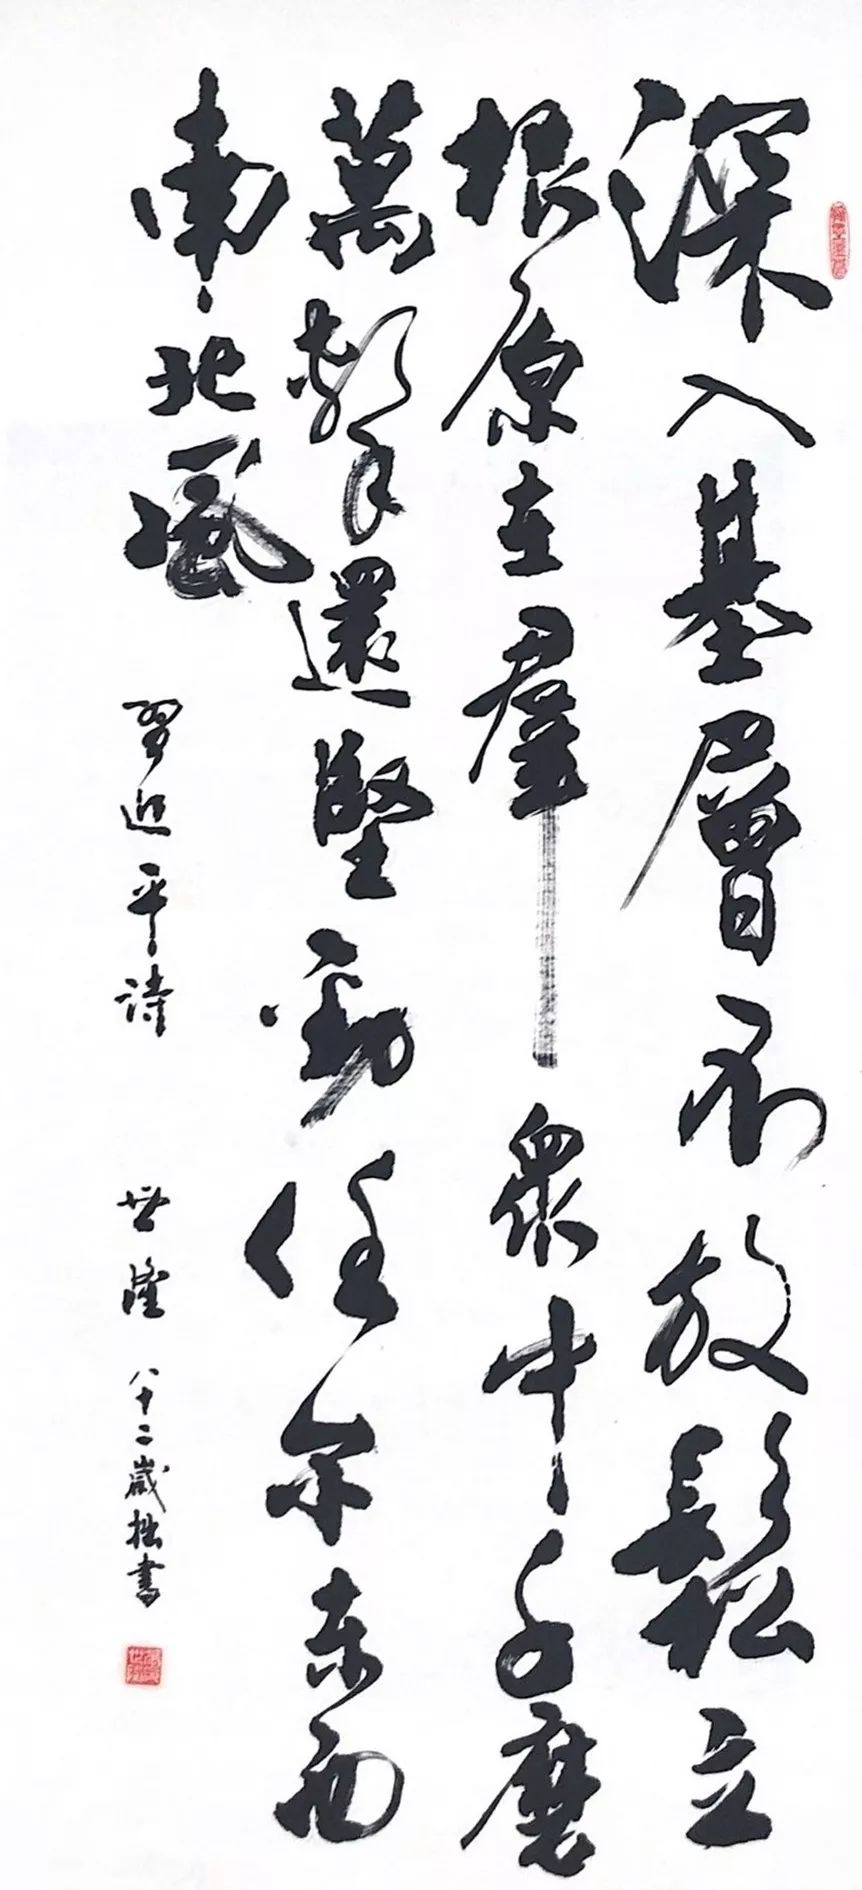 深入基層不放鬆立
根原在羣眾中千磨
萬擊還堅勁任尔东西
南北風
習近平詩
世隆
八十二歲拙書